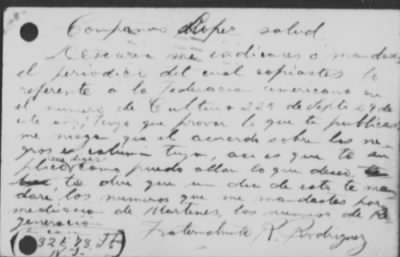 Companero Lopez salud
Desearia me indicaras o mandaras
el periodico del cual copiastes lo
referente a la federacion americana en
el numero de Cultura 225 de Septe 29 de
este año tengo que provar lo que tu publicas
me niegan que el acuerdo sobre los ne
gros es calumnia tuya, asi es que te su
plico me digas como puedo allar lo que deseo
te dire que un dia de este te man
dare los numeros que me mandastes por
mediacion de Martines, los numeros de Re
generacion
Fraternalmente R. Rodriguez